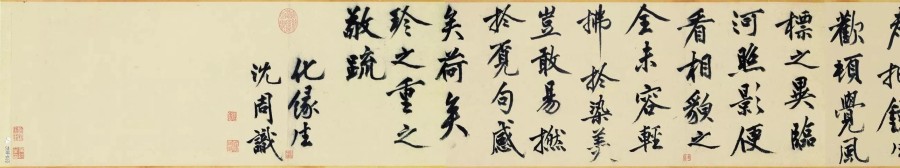 歡頓覺風
標之異臨
河照影便
看相貌之
全未容輕
拂於染羹
豈敢易撚
於覓句感
矣荷矣
珍之重之
敬疏
化緣生
沈周識